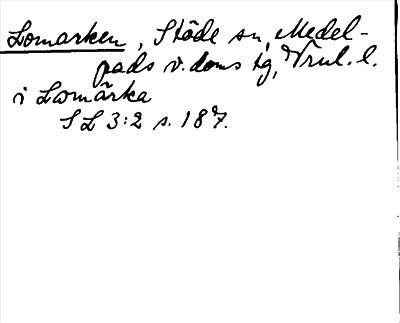 Lomarken, Stöde sn, Medel-
pads v. doms tg, Vrul. l.
i Lomärka
SL 3:2 s. 187.